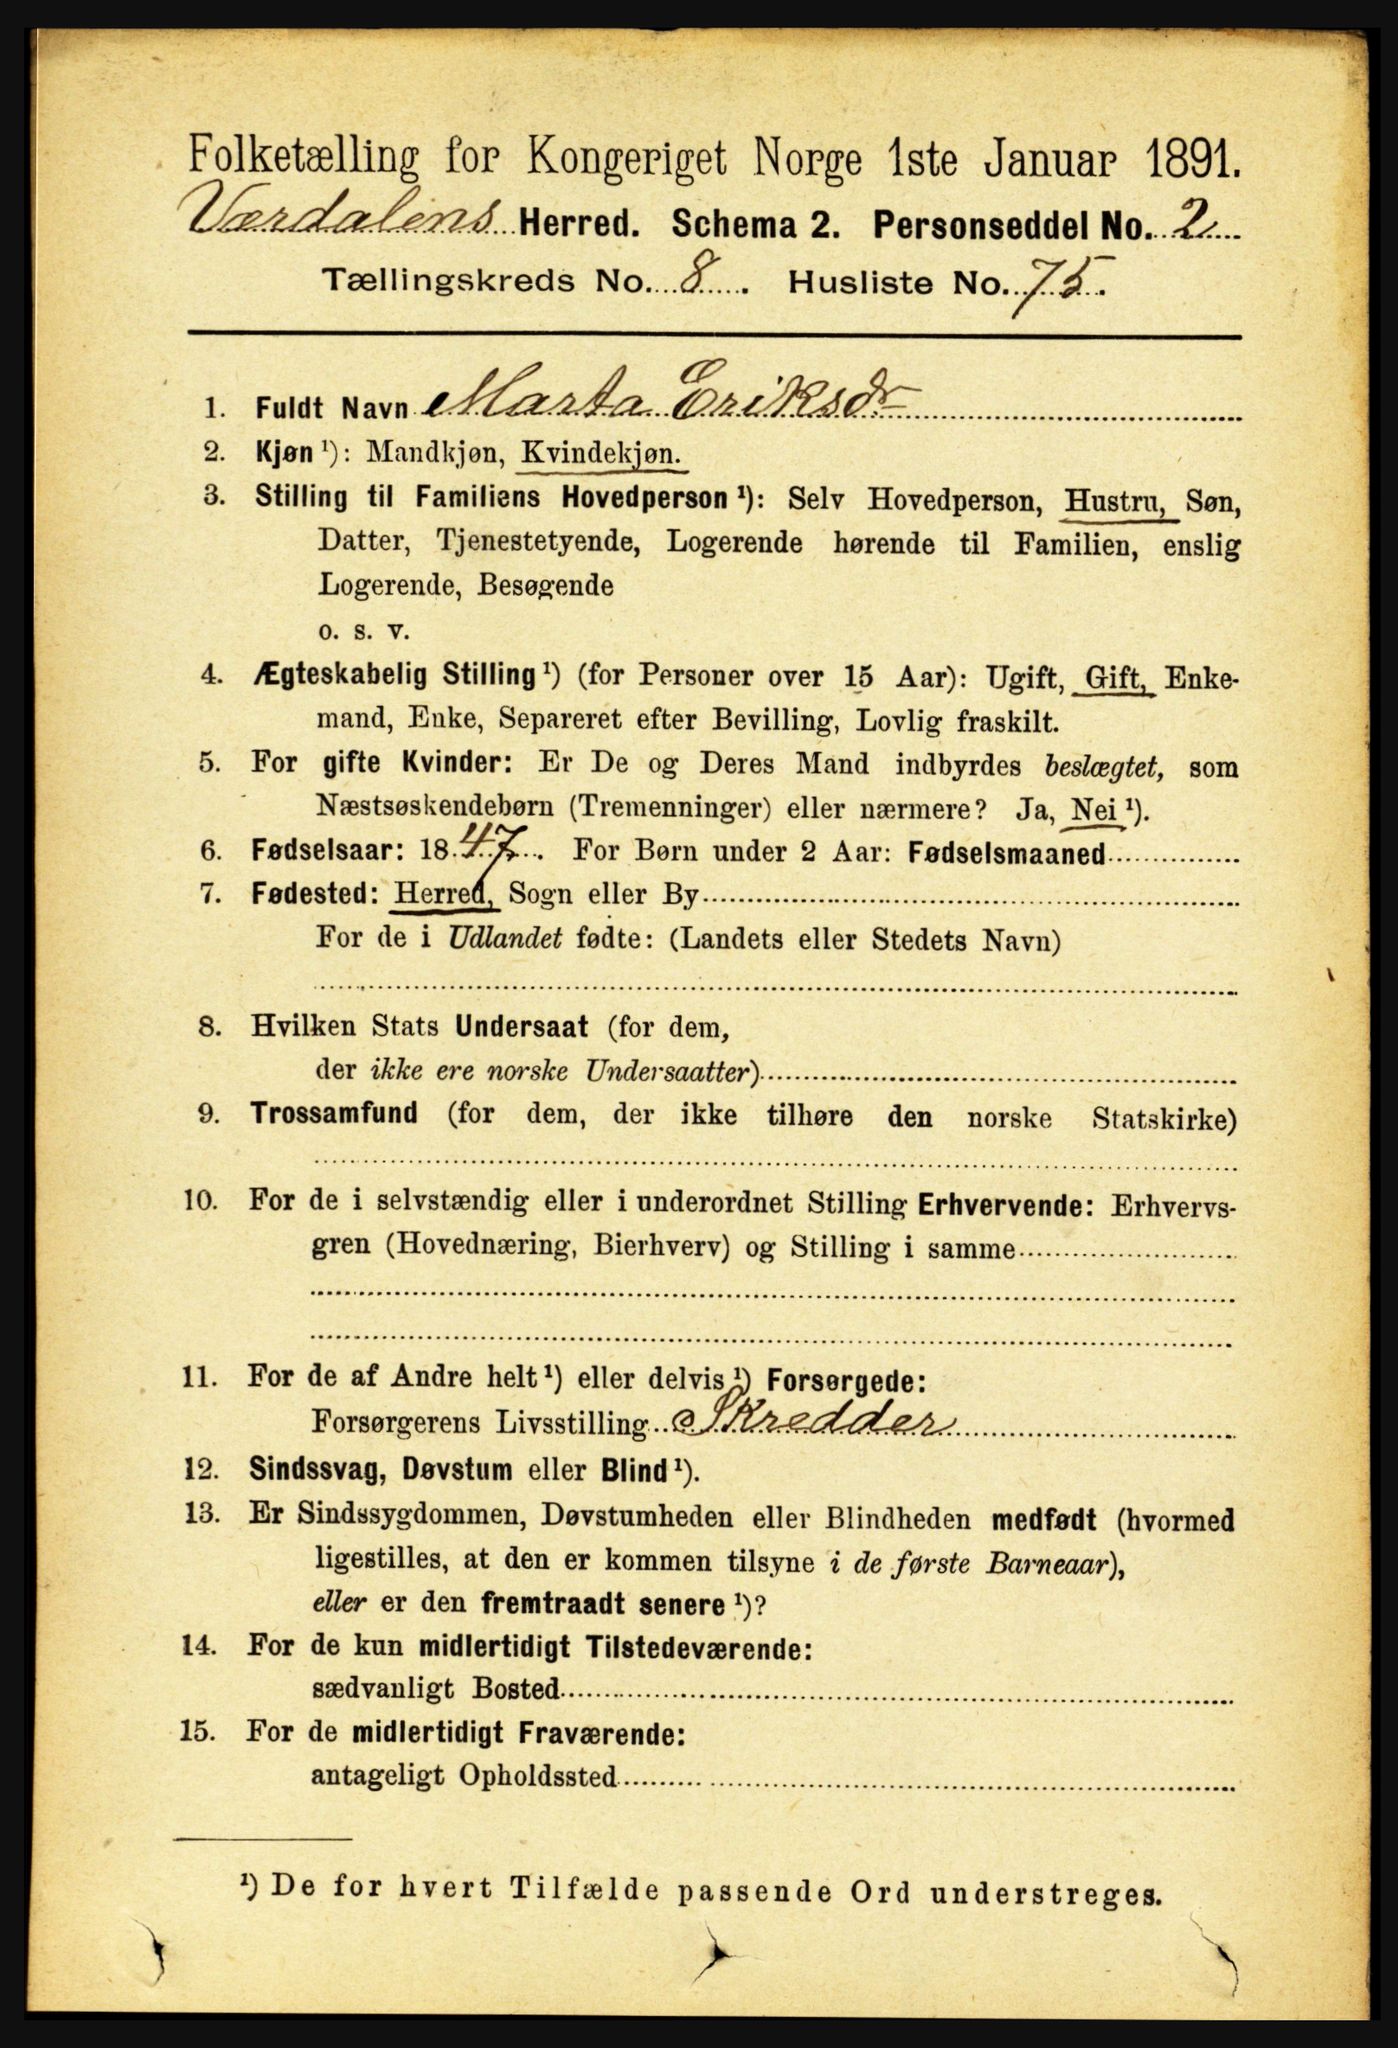 Folketælling for Kongeriget Norge 1ste Januar 1891.
Værdalens Herred. Schema 2. Personseddel No. 2
Tællingskreds No. 8. Husliste No. 75.
1. Fuldt Navn Marta Eriksdr
2. Kjøn ¹): Mandkjøn, Kvindekjøn.
3. Stilling til Familiens Hovedperson ¹): Selv Hovedperson, Hustru, Søn,
Datter, Tjenestetyende, Logerende hørende til Familien, enslig
Logerende, Besøgende
o. s. v.
4. Ægteskabelig Stilling ¹) (for Personer over 15 Aar): Ugift, Gift, Enke-
mand, Enke, Separeret efter Bevilling, Lovlig fraskilt.
5. For gifte Kvinder: Er De og Deres Mand indbyrdes beslægtet, som
Næstsøskendebørn (Tremenninger) eller nærmere? Ja, Nei ¹).
6. Fødselsaar: 1847. For Børn under 2 Aar: Fødselsmaaned
7. Fødested: Herred, Sogn eller By
For de i Udlandet fødte: (Landets eller Stedets Navn)
8. Hvilken Stats Undersaat (for dem,
der ikke ere norske Undersaatter)
9. Trossamfund (for dem, der ikke tilhøre den norske Statskirke)
10. For de i selvstændig eller i underordnet Stilling Erhvervende: Erhvervs-
gren (Hovednæring, Bierhverv) og Stilling i samme
11. For de af Andre helt ¹) eller delvis ¹) Forsørgede:
Forsørgerens Livsstilling Skredder
12. Sindssvag, Døvstum eller Blind ¹).
13. Er Sindssygdommen, Døvstumheden eller Blindheden medfødt (hvormed
ligestilles, at den er kommen tilsyne i de første Barneaar),
eller er den fremtraadt senere ¹)?
14. For de kun midlertidigt Tilstedeværende:
sædvanligt Bosted
15. For de midlertidigt Fraværende:
antageligt Opholdssted
¹) De for hvert Tilfælde passende Ord understreges.